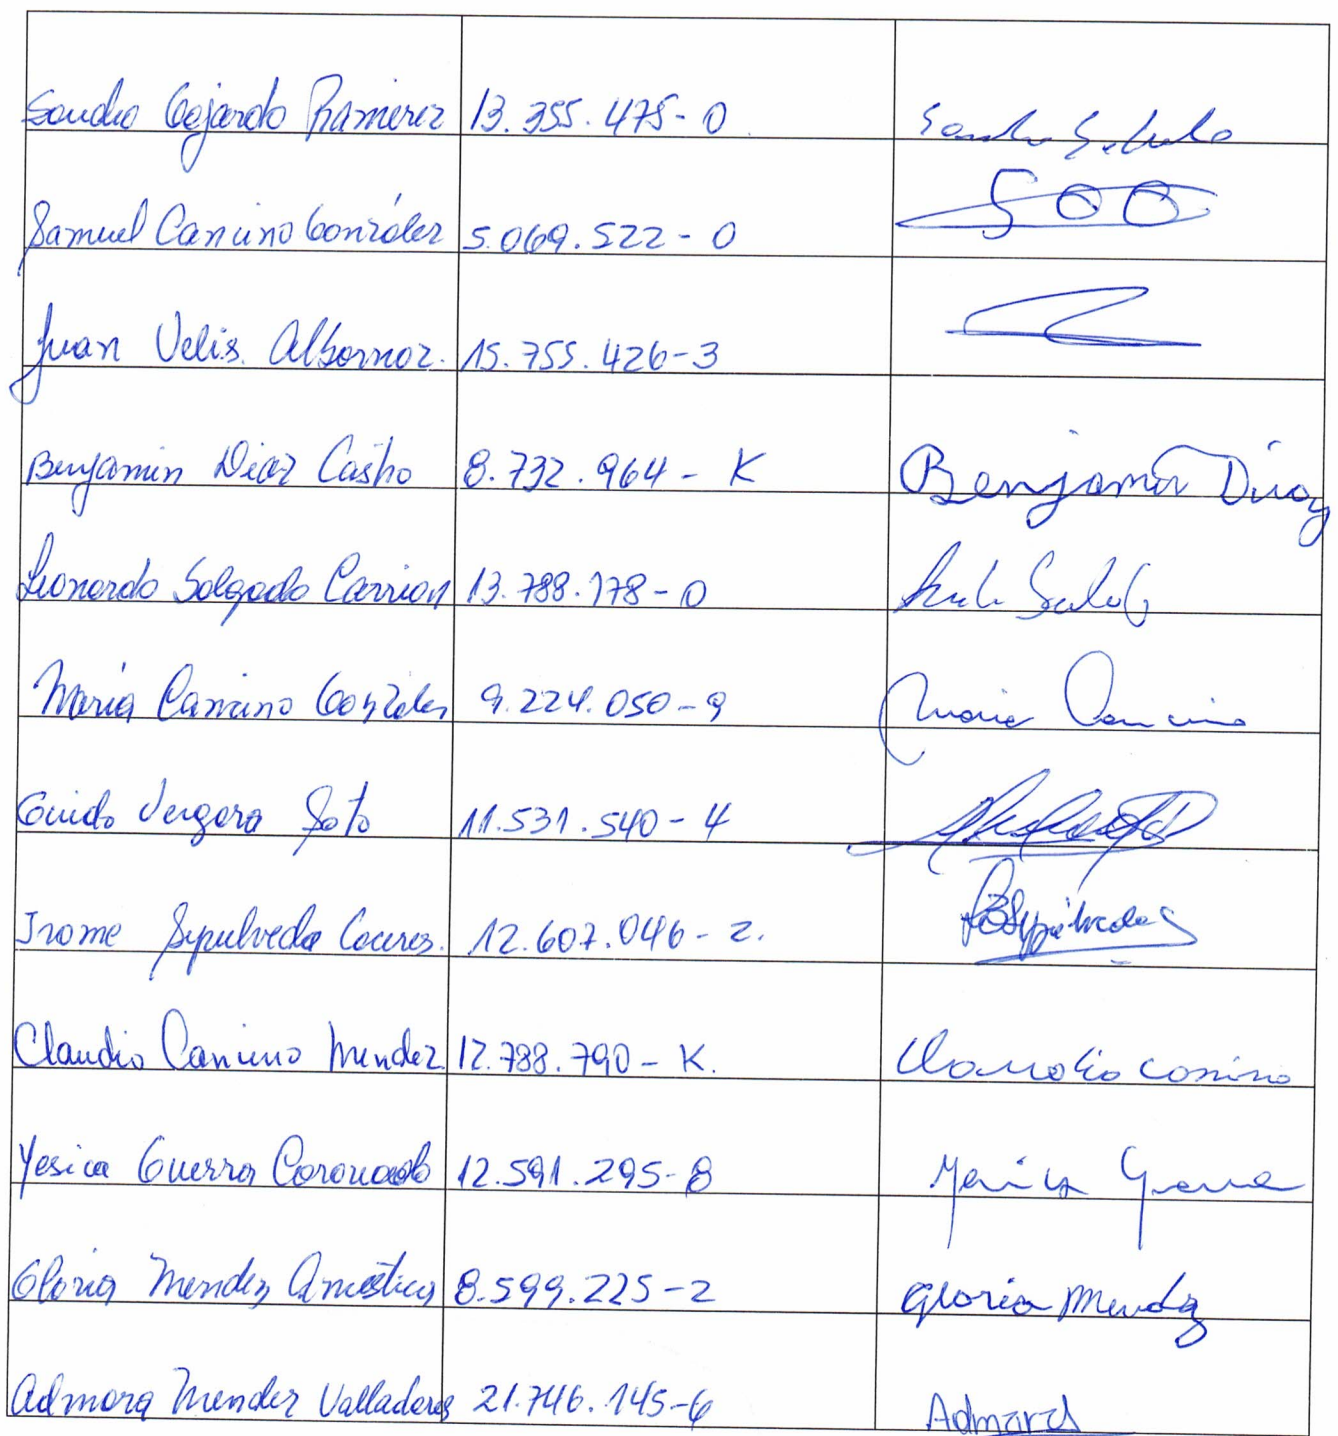 Sandro Gajardo Ramirez 13.355.475-0
Samuel Cancino González 5.069.522-0 SOO
Juan Velis Albornoz. 15.755.426-3
Benjamin Diaz Castro 8.732.964-K Benjamin Diaz
Leonardo Salgado Carrion 13.788.178-0
Maria Cancino González 9.224.050-9 Maria Cancino
Guido Vergara Soto 11.531.540-4
Irome Sepulveda Caceres. 12.607.046-2. Sepúlveda
Claudio Cancino Mendez 12.788.790-K. Claudio Cansino
Yesica Guerra Coronado 12.591.295-8 Yesica Guerra
Gloria Mendez 8.599.225-2 Gloria Mendez
Admara Mendez Valladares 21.746.145-6 Admara